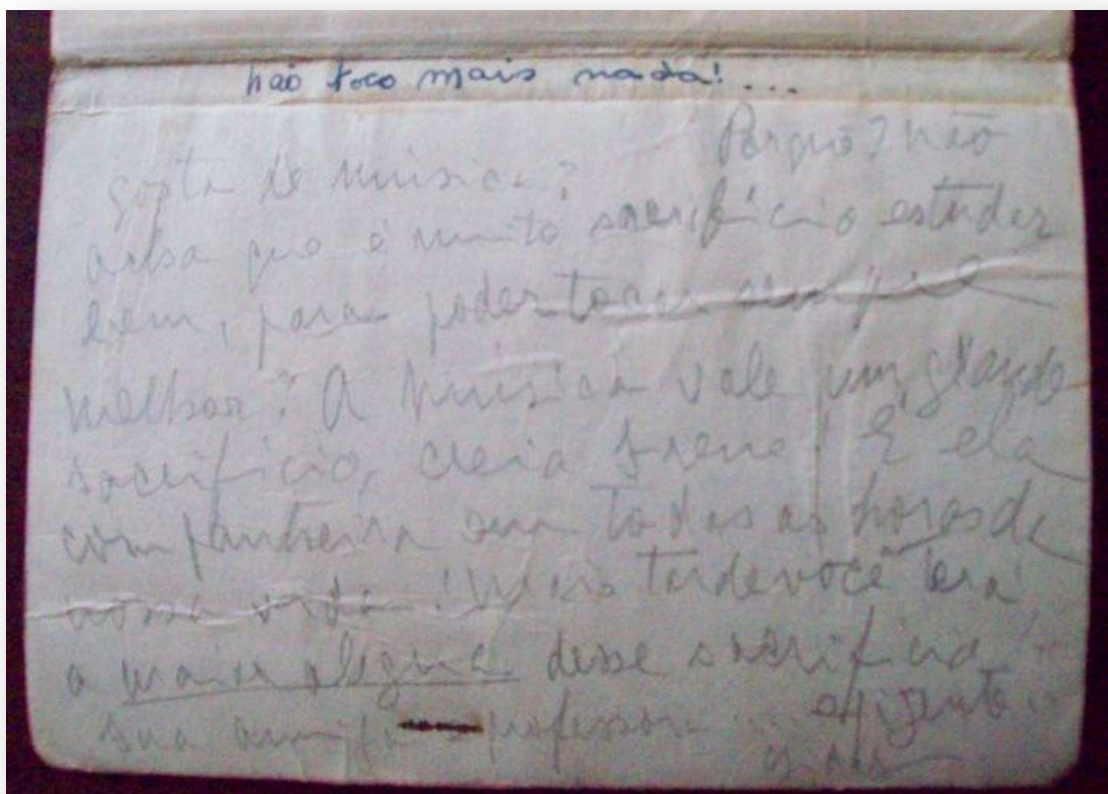 não toco mais nada!...
Porquê? não
gosta de música?
acha que é muito sacrifício estudar
bem, para poder tocar sempre
melhor? A música vale um grande
sacrifício, creia Irene! E ela
companheira em todas as horas de
nossa vida! Mais tarde você
a maior alegria desse sacrifício!...
sua amiga professora.... exigente..